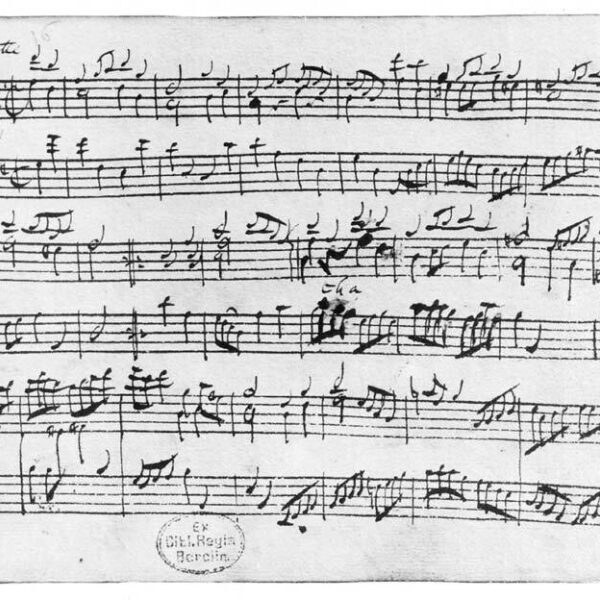 16
c h a
Ex
Bibl.Regia
Berolin.